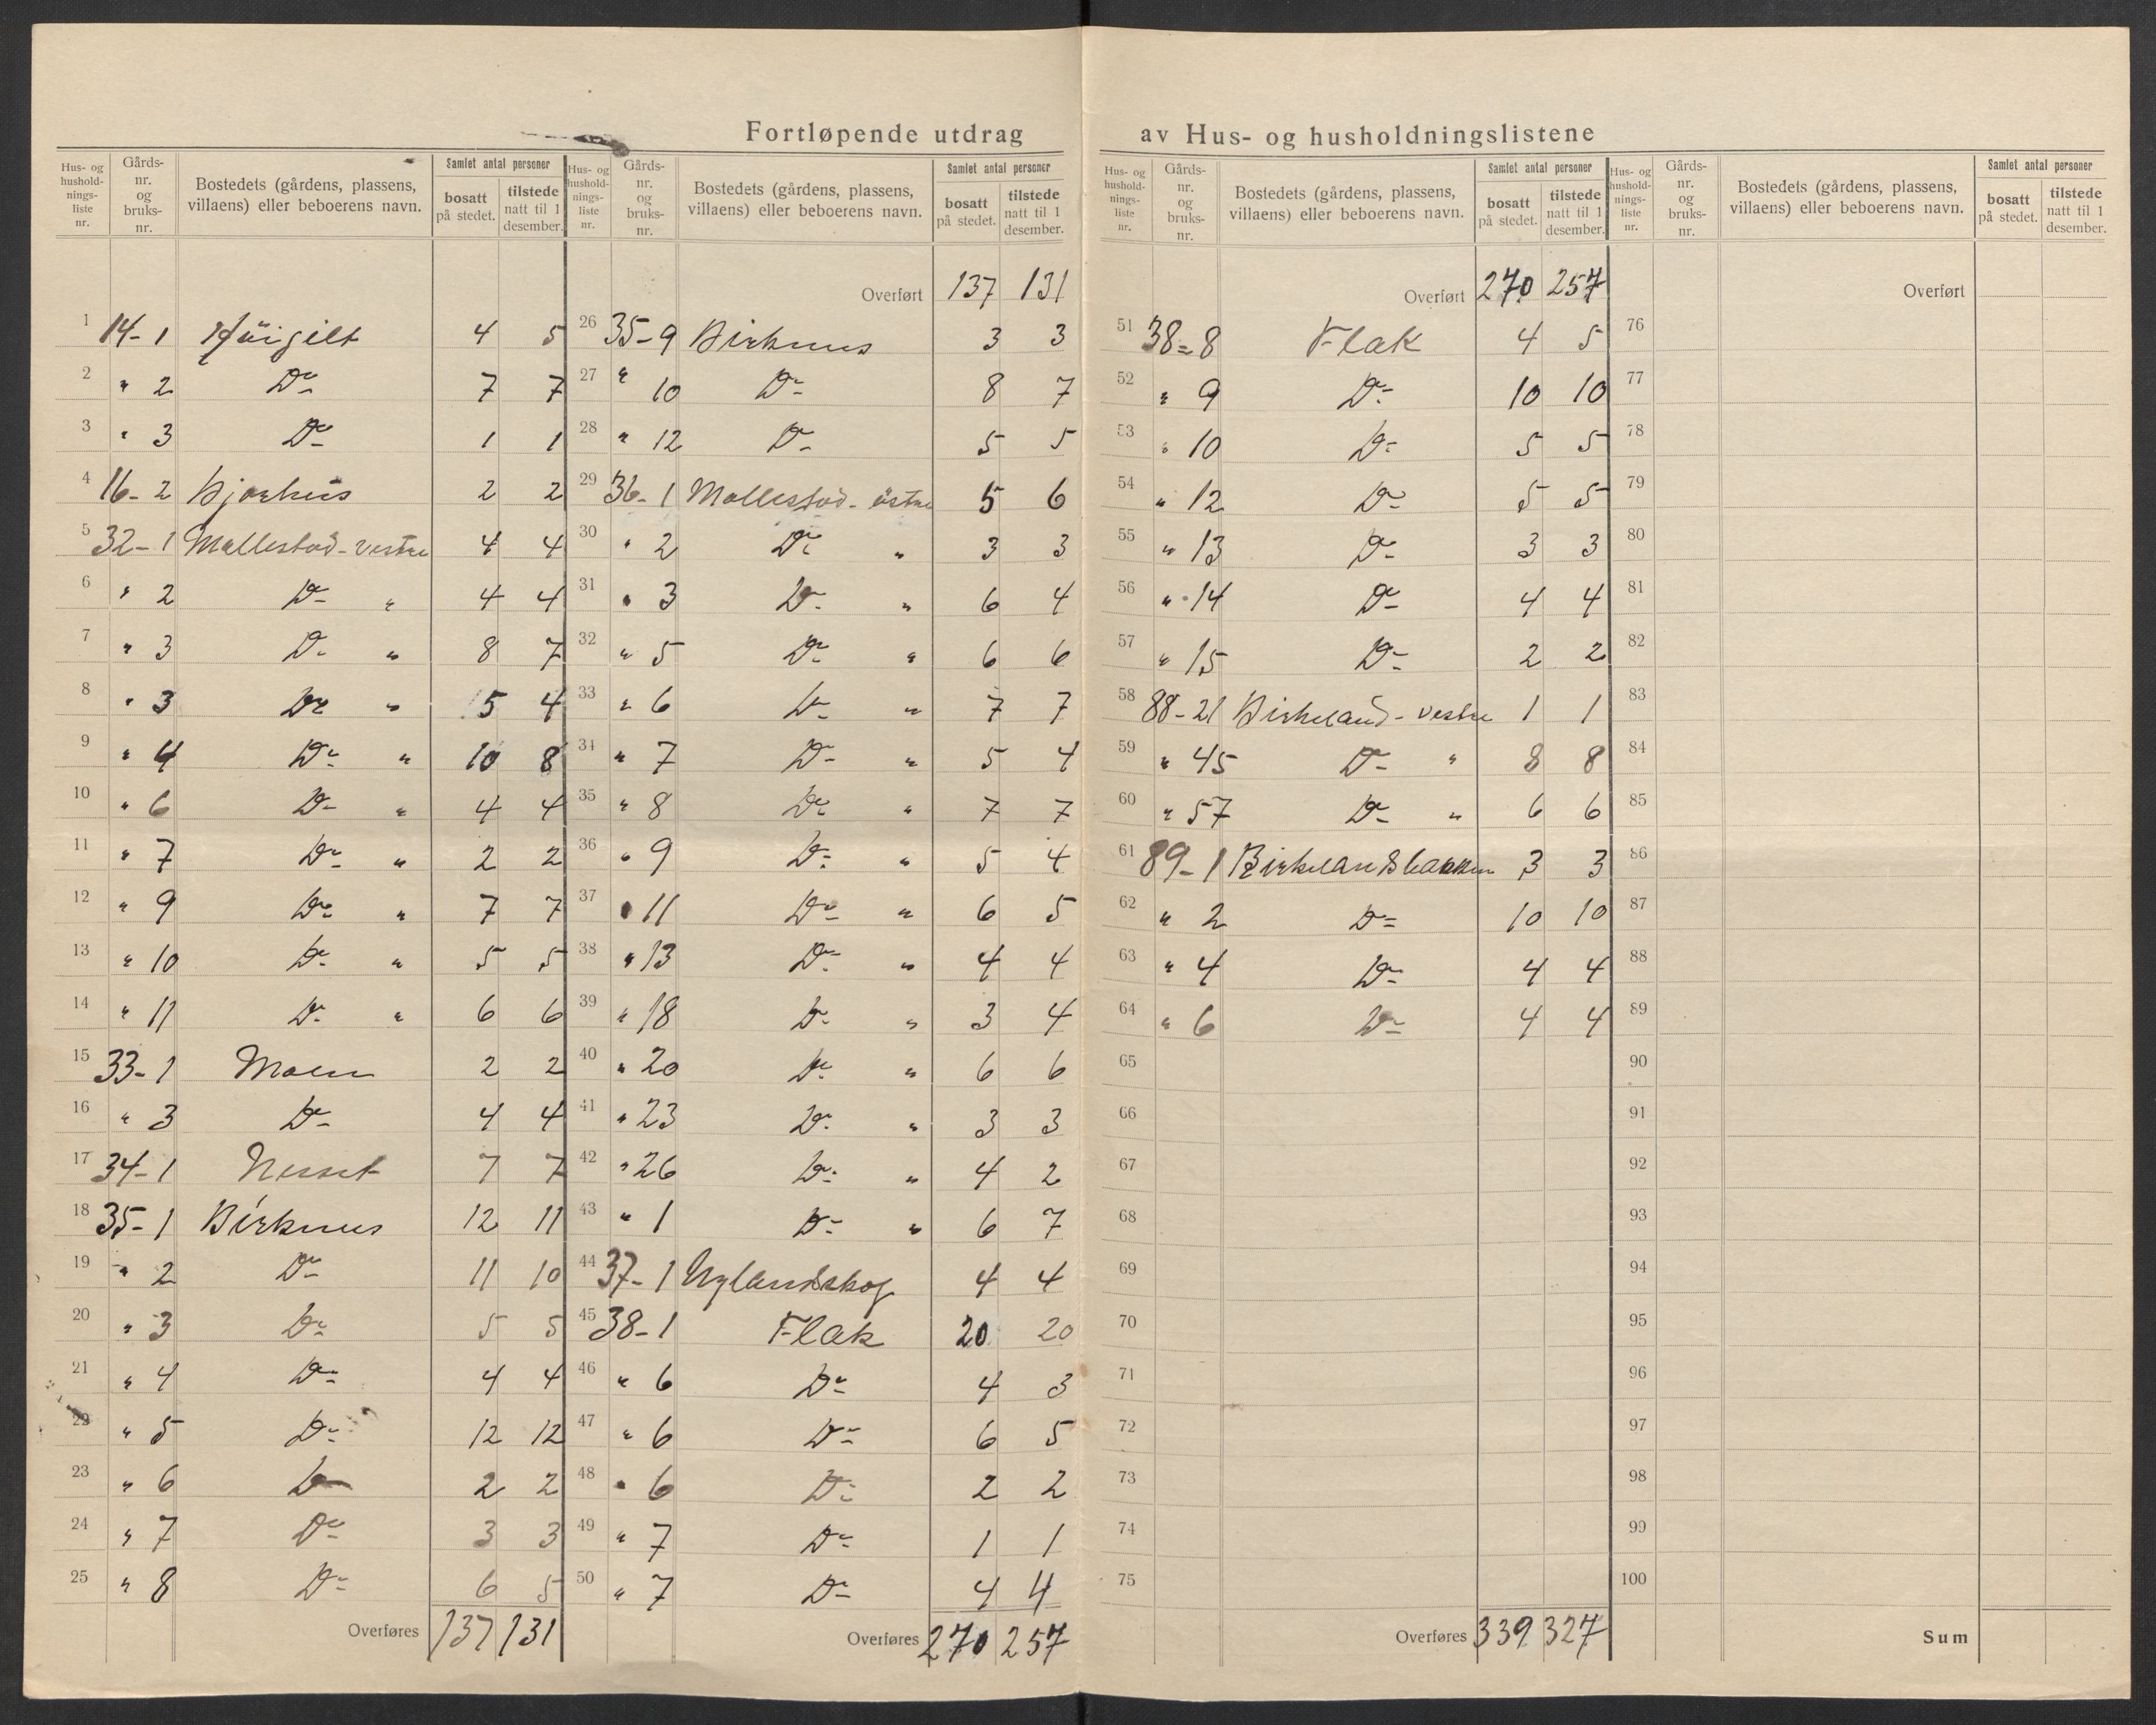 Fortløpende utdrag av Hus- og husholdningslistene
Hus- og hushold-nings-liste nr. | Gårds-nr. og bruks-nr. | Bostedets (gårdens, plassens, villaens) eller beboerens navn. | Samlet antal personer | bosatt på stedet. | tilstede natt til 1 desember.
1 14-1 Høigilt 4 5
2 " 2 Do 7 7
3 " 3 Do 1 1
4 16-2 Bjorhus 2 2
5 32-1 Mollestad-vestre 4 4
6 " 2 Do " 4 4
7 " 3 Do " 8 7
8 " 3 Do " 5 4
9 " 4 Do " 10 8
10 " 6 Do " 4 4
11 " 7 Do " 2 2
12 " 9 Do " 7 7
13 " 10 Do " 5 5
14 " 11 Do " 6 6
15 33-1 Moen 2 2
16 " 3 Do 4 4
17 34-1 Nesset 7 7
18 35-1 Birknes 12 11
19 " 2 Do 11 10
20 " 3 Do 5 5
21 " 4 Do 4 4
22 " 5 Do 12 12
23 " 6 Do 2 2
24 " 7 Do 3 3
25 " 8 Do 6 5
Overføres 137 131
Hus- og hushold-nings-liste nr. | Gårds-nr. og bruks-nr. | Bostedets (gårdens, plassens, villaens) eller beboerens navn. | Samlet antal personer | bosatt på stedet. | tilstede natt til 1 desember.
Overført 137 131
26 35-9 Birknes 3 3
27 " 10 Do 8 7
28 " 12 Do 5 5
29 36-1 Mollestad-østre 5 6
30 " 2 Do " 3 3
31 " 3 Do " 6 4
32 " 5 Do " 6 6
33 " 6 Do " 7 7
34 " 7 Do " 5 4
35 " 8 Do " 7 7
36 " 9 Do " 5 4
37 " 11 Do " 6 5
38 " 13 Do " 4 4
39 " 18 Do " 3 4
40 " 20 Do " 6 6
41 " 23 Do " 3 3
42 " 26 Do " 4 2
43 " 1 Do " 6 7
44 37-1 Uglandskog 4 4
45 38-1 Flak 20 20
46 " 6 Do 4 3
47 " 6 Do 6 5
48 " 6 Do 2 2
49 " 7 Do 1 1
50 " 7 Do 4 4
Overføres 270 257
Hus- og hushold-nings-liste nr. | Gårds-nr. og bruks-nr. | Bostedets (gårdens, plassens, villaens) eller beboerens navn. | Samlet antal personer | bosatt på stedet. | tilstede natt til 1 desember.
Overført 270 257
51 38-8 Flak 4 5
52 " 9 Do 10 10
53 " 10 Do 5 5
54 " 12 Do 5 5
55 " 13 Do 3 3
56 " 14 Do 4 4
57 " 15 Do 2 2
58 88-21 Birkeland-vestre 1 1
59 " 45 Do " 8 8
60 " 57 Do " 6 6
61 89-1 Birkelandsbakken 3 3
62 " 2 Do 10 10
63 " 4 Do 4 4
64 " 6 Do 4 4
65
66
67
68
69
70
71
72
73
74
75
Overføres 339 327
Hus- og hushold-nings-liste nr. | Gårds-nr. og bruks-nr. | Bostedets (gårdens, plassens, villaens) eller beboerens navn. | Samlet antal personer | bosatt på stedet. | tilstede natt til 1 desember.
Overført
76
77
78
79
80
81
82
83
84
85
86
87
88
89
90
91
92
93
94
95
96
97
98
99
100
Sum